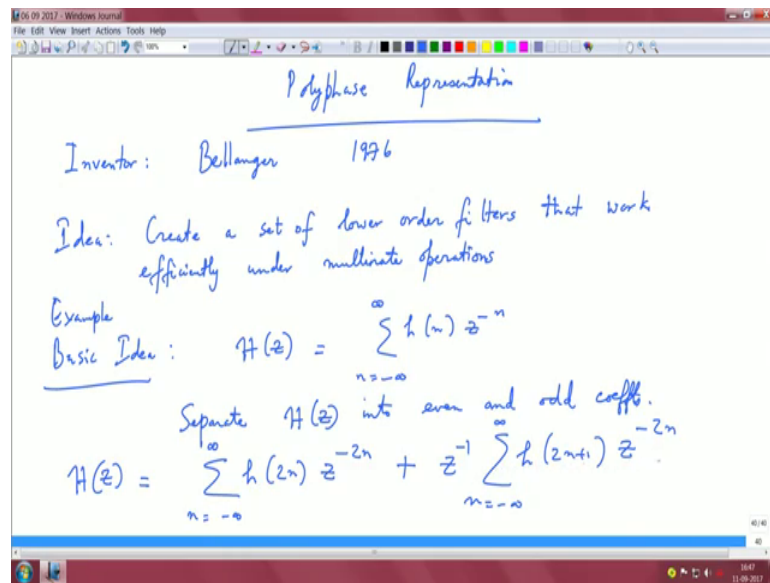 06 09 2017 - Windows Journal
File Edit View Insert Actions Tools Help
100%
Polyphase Representation
Inventor: Bellanger 1976
Idea: Create a set of lower order filters that work
efficiently under multirate operations
Example
Basic Idea: H(z) = ∑_{n=-∞}^{∞} h(n) z^{-n}
Separate H(z) into even and odd coeffts.
H(z) = ∑_{n=-∞}^{∞} h(2n) z^{-2n} + z^{-1} ∑_{n=-∞}^{∞} h(2n+1) z^{-2n}
40/40
40
16:47
11-09-2017